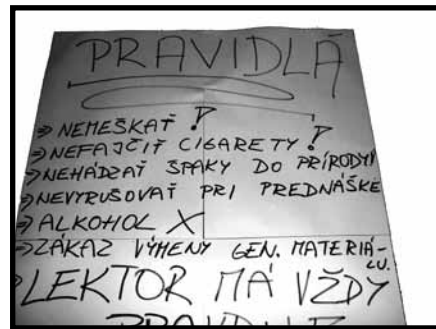 PRAVIDLÁ
⇒ NEMEŠKAŤ !
⇒ NEFAJČIŤ CIGARETY !
⇒ NEHÁDZAŤ ŠPAKY DO PRÍRODY!
⇒ NEVYRUŠOVAŤ PRI PREDNÁŠKE
⇒ ALKOHOL X
⇒ ZÁKAZ VÝMENY GEN. MATERIÁ-
LU.
LEKTOR MÁ VŽDY